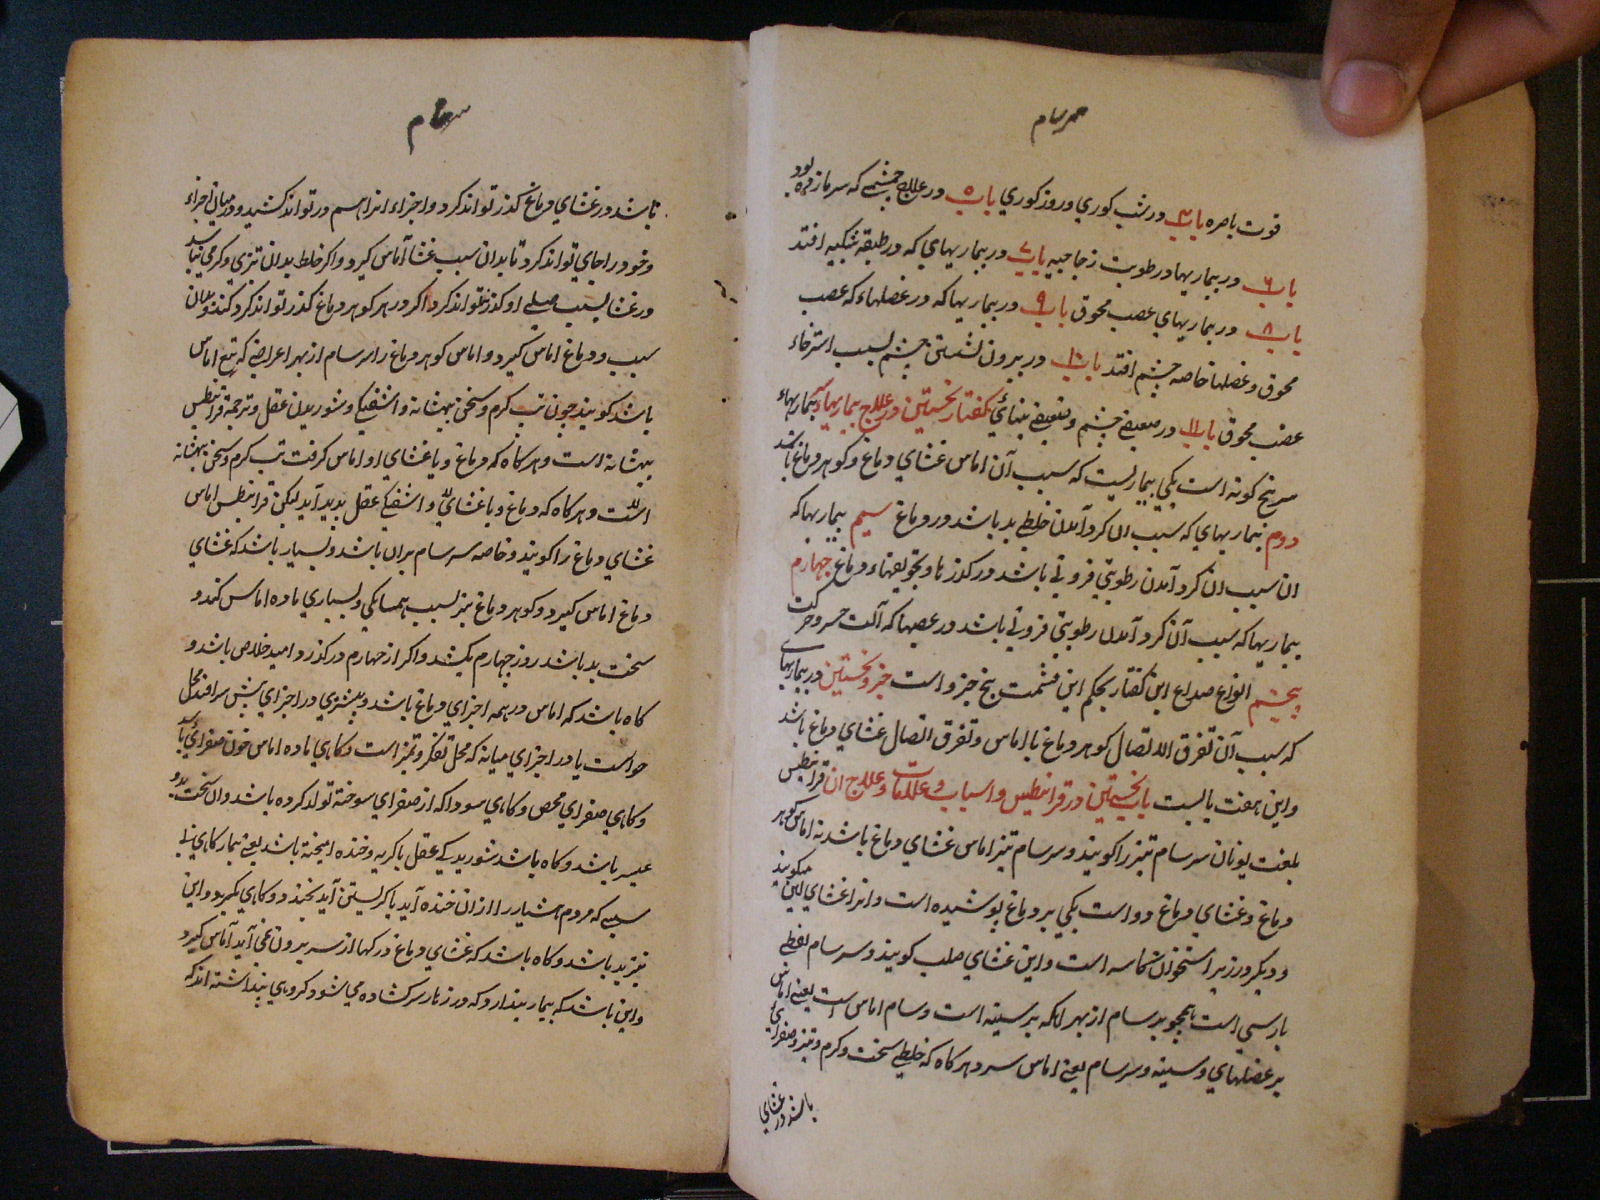 سرسام
قوت باصره باب ۴ در شب کوری و روز کوری باب ۵ در علاج چشمی که سرمازده بود
باب ۶ در بیماریها در طوبت زجاجیه باب ۷ در بیماریهای که در طبقه شبکیه افتد
باب ۸ در بیماریهای عصب مجوق باب ۹ در بیماریها که در عضلهاء که عصب
مجوق و عضلها خاصه چشم افتد باب ۱۰ در بیرون نشستن چشم بسبب استرخاء
عصب مجوق باب ۱۱ در ضعیفی چشم و ضعیفی بینائی گفتار نخستین در علاج بیماریهاء سر بیماریهاء
سر پنج کونه است یکی بیماریست که سبب آن اماس غشای دماغ و کوهر دماغ باشد
دوم بیماریهای که سبب ان کرد آمدن خلطی بد باشد در دماغ سیم بیماریها که
ان سبب ان کرد آمدن رطوبتی فزونی باشد در کذرها و تجویفهاء دماغ چهارم
بیماریها که سبب آن کرد آمدن رطوبتی فزونی باشد در عصبها که آلت حس و حرکت
پنجم انواع صداع این کفتار بحکم این قسمت پنج جزو است جزو نخستین در بیماریهای
که سبب آن تفرق الاتصال کوهر دماغ با اماس و تفرق اتصال غشای دماغ باشد
و این هفت بابست باب نخستین در قرانیطس و اسباب و علامات و علاج ان قرانیطس
بلغت یونان سرسام تیز را کویند و سرسام تیز اماس غشای دماغ باشد نه اماس کوهر
دماغ و غشای دماغ دو است یکی بر دماغ پوشیده است و انرا غشای لین میکویند
و دیکر در زیر استخوان کاسه است و این غشای صلب کویند و سرسام لفظی
پارسی است همچو برسام از بهر انکه بر سینه است و سام اماس است یعنی اماس
بر عضلهای و سینه و سرسام یعنی اماس سر و هرکاه که خلطی سخت و کرم و تیز و صفرای
باشد در غشای
سرسام
باشد در غشای دماغ کذر تواند کرد و اجزاء انرا بهم در تواند کشید و در میان اجزاء
و خود را جای تواند کرد تا بدان سبب غشا آماس کیرد و اکر خلط بدان تیزی و کرمی نباشد
در غشا بسبب صلبی او کذر نتواند کرد اکر در هر کوهر دماغ کذر تواند کرد کند و بدان
سبب و دماغ اماس کیرد و اماس کوهر دماغ را سرسام از بهر اعراضی که تبع اماس
باشد کویند چون تب کرم و سخن بیهشانه و اشفتکی و شوریدن عقل و ترجمهٔ قرانیطس
بیهشانه است و هرکاه که دماغ و یا غشای او اماس کرفت تب کرم و سخن بیهشانه
است و هرکاه که دماغ و یا غشای و اشفتکی عقل پدید آید لیکن قرانیطس اماس
غشای دماغ را کویند و خاصه سرسام بران باشد و بسیار باشد که غشای
دماغ اماس کیرد و کوهر دماغ نیز بسبب همسایکی و بسیاری ماده اماس کند و
سخت بد باشد روز چهارم بکشد و اکر از چهارم در کذرد امید خلاص باشد و
کاه باشد که اماس در همه اجزای دماغ باشد و بیشتری در اجزای پیش سر افتد محل
حواست یا در اجزای میانه که محل تفکر و تمیز است و کاهی ماده اماس خون صفرای باشد
و کاهی صفرای محض و کاهی سودا که از صفرای سوخته تولد کرده باشد و ان سخت بد و
عسیر باشد و کاه باشد شوریدکی عقل با کریه و خنده امیخته باشد یعنی بیمار کاهی بی
سببی که مردم هشیار را از ان خنده آید یا کریستن آید بخندد و کاهی بکرید و این
نیز بد باشد و کاه باشد که غشای دماغ در کها از سر بیرون می آید آماس کیرد
و این باشد که بیمار پندارد که درزهار سر کشاده می شود کروهی پنداشته اند که